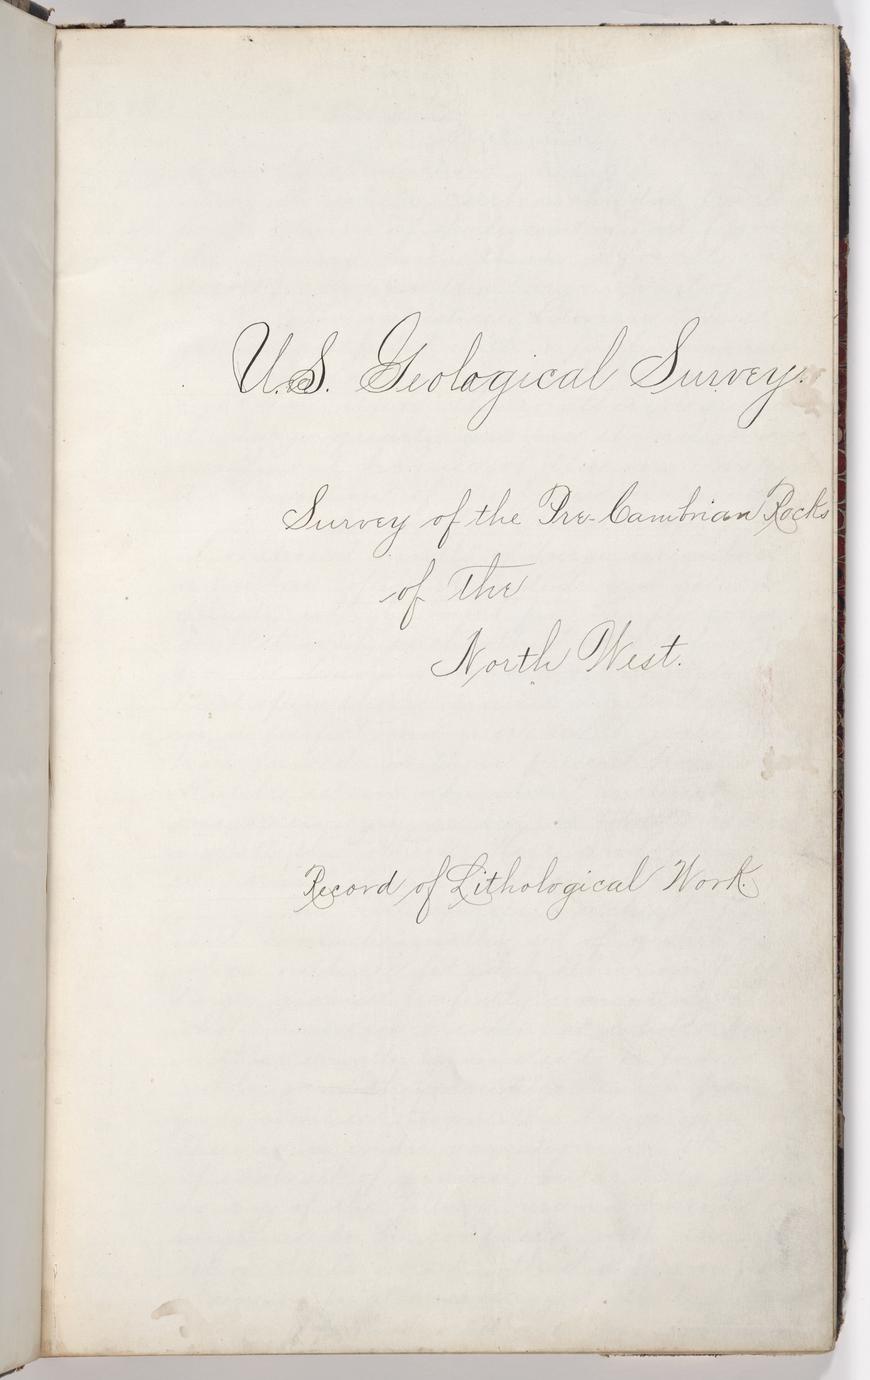 U.S. Geological Survey.
Survey of the Pre-Cambrian Rocks
of the
North West.
Record of Lithological Work.